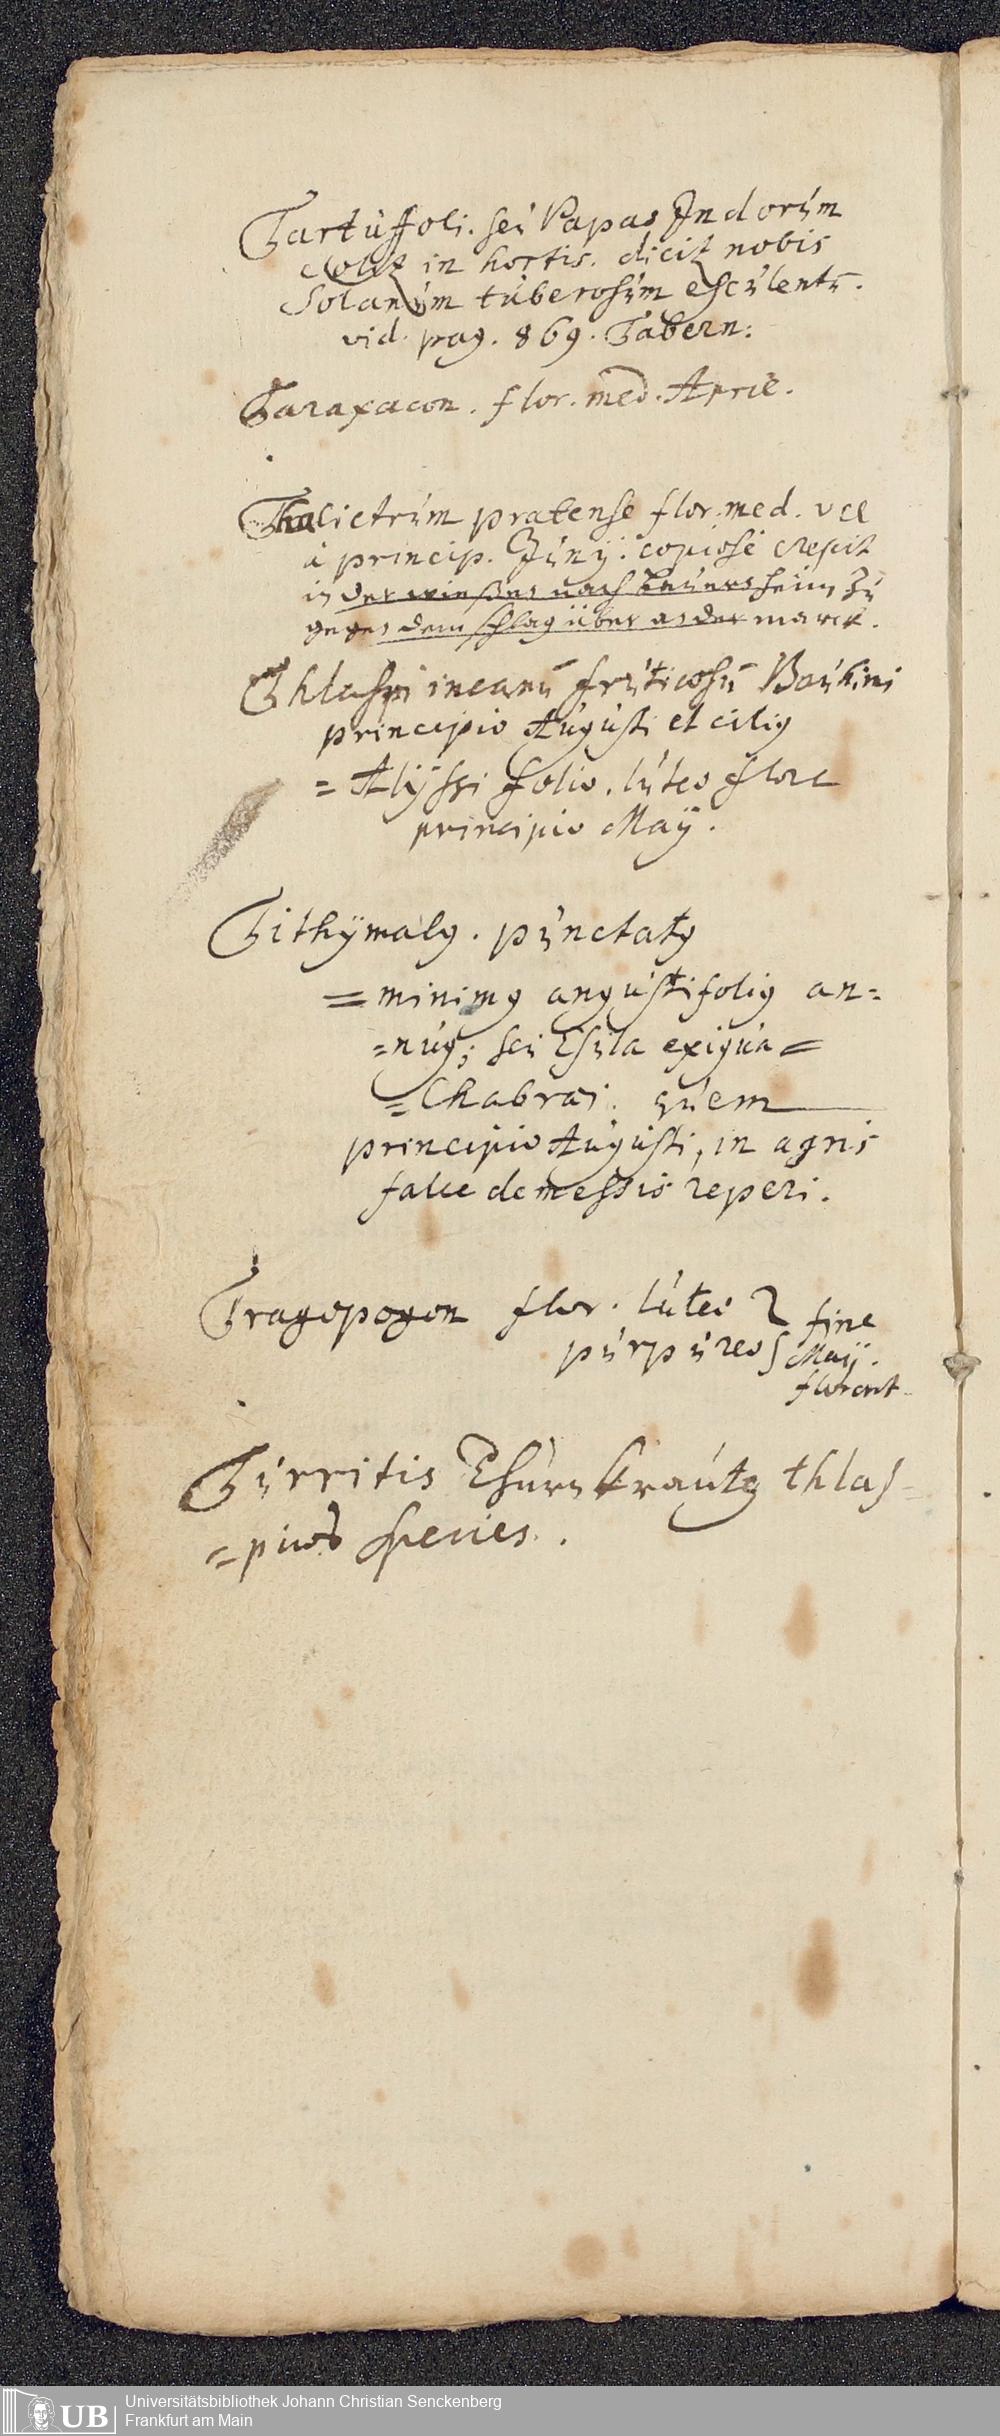 Tartuffoli. seu Papas Indorum
colit[ur] in hortis. dicit[ur] nobis
Solanum tuberosum esculentū.
vid. pag. 869. Tabern:
Taraxacon. flor. med. April.
Thalictrum pratense flor. med. vel
à princip. Junij. copiosè crescit
in der wießen nach heim zu
gegen dem schlag über an der marck.
Thlaspi incanū fruticosū Bauhini
principio Augusti et citi9
= Alÿssi folio. luteo flore
principio Maÿ.
Tithÿmal9. punctat9
= minim9 angustifoli9 an=
=nu9; seu Esula exigua =
= Chabræi. quem
principio Augusti, in agris
falce demessis reperi.
Tragopogon flor. luteo } fine
purpureo } Maij.
florent
Turritis kraut9 thlas=
=pios species.
Universitätsbibliothek Johann Christian Senckenberg
Frankfurt am Main
UB